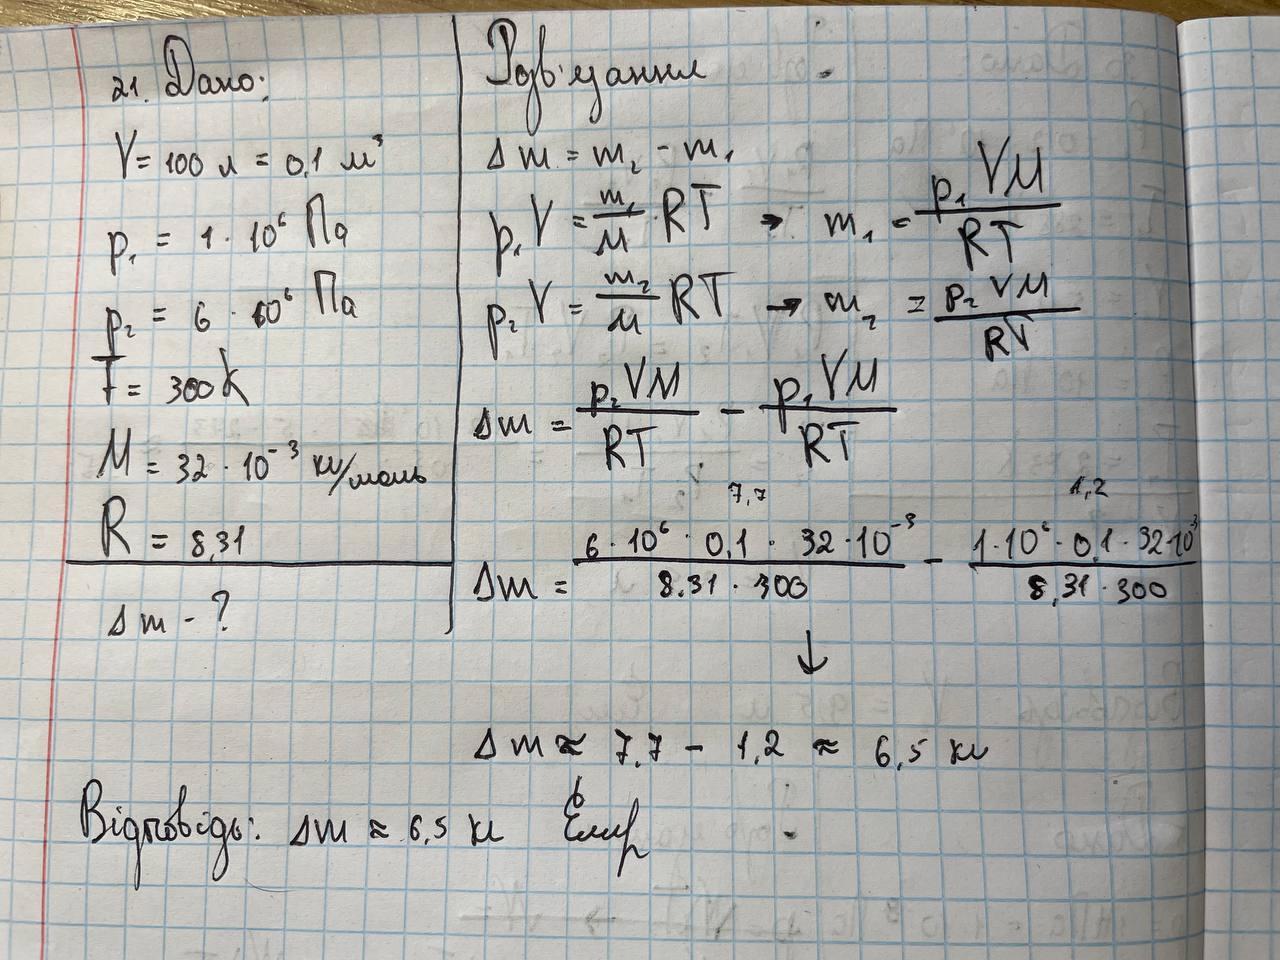 21. Дано:
V = 100 л = 0,1 м³
p₁ = 1 · 10⁶ Па
p₂ = 6 · 10⁶ Па
T = 300 K
M = 32 · 10⁻³ кг/моль
R = 8,31
Δm - ?
Розв'язання
Δm = m₂ - m₁
p₁V = m₁/M · RT → m₁ = p₁VM/RT
p₂V = m₂/M RT → m₂ = p₂VM/RT
Δm = p₂VM/RT - p₁VM/RT
7,7 1,2
Δm = 6 · 10⁶ · 0,1 · 32 · 10⁻³/8.31 · 300 - 1 · 10⁶ · 0,1 · 32 · 10³/8,31 · 300
↓
Δm ≈ 7,7 - 1,2 ≈ 6,5 кг
Відповідь: Δm ≈ 6,5 кг